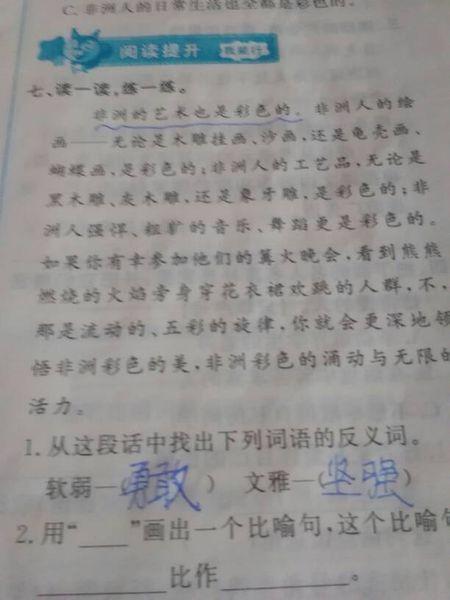 C. 非洲人的日常生活也全都是彩色的。
阅读提升 我能行
七、读一读,练一练。
非洲的艺术也是彩色的。非洲人的绘
画——无论是木雕挂画、沙画,还是龟壳画、
蝴蝶画,是彩色的;非洲人的工艺品,无论是
黑木雕、灰木雕,还是象牙雕,是彩色的;非
洲人强悍、粗犷的音乐、舞蹈更是彩色的。
如果你有幸参加他们的篝火晚会,看到熊熊
燃烧的火焰旁身穿花衣裙欢跳的人群,不,
那是流动的、五彩的旋律,你就会更深地领
悟非洲彩色的美,非洲彩色的涌动与无限的
活力。
1. 从这段话中找出下列词语的反义词。
软弱—(勇敢) 文雅—(坚强)
2. 用“____”画出一个比喻句,这个比喻句
________比作________。